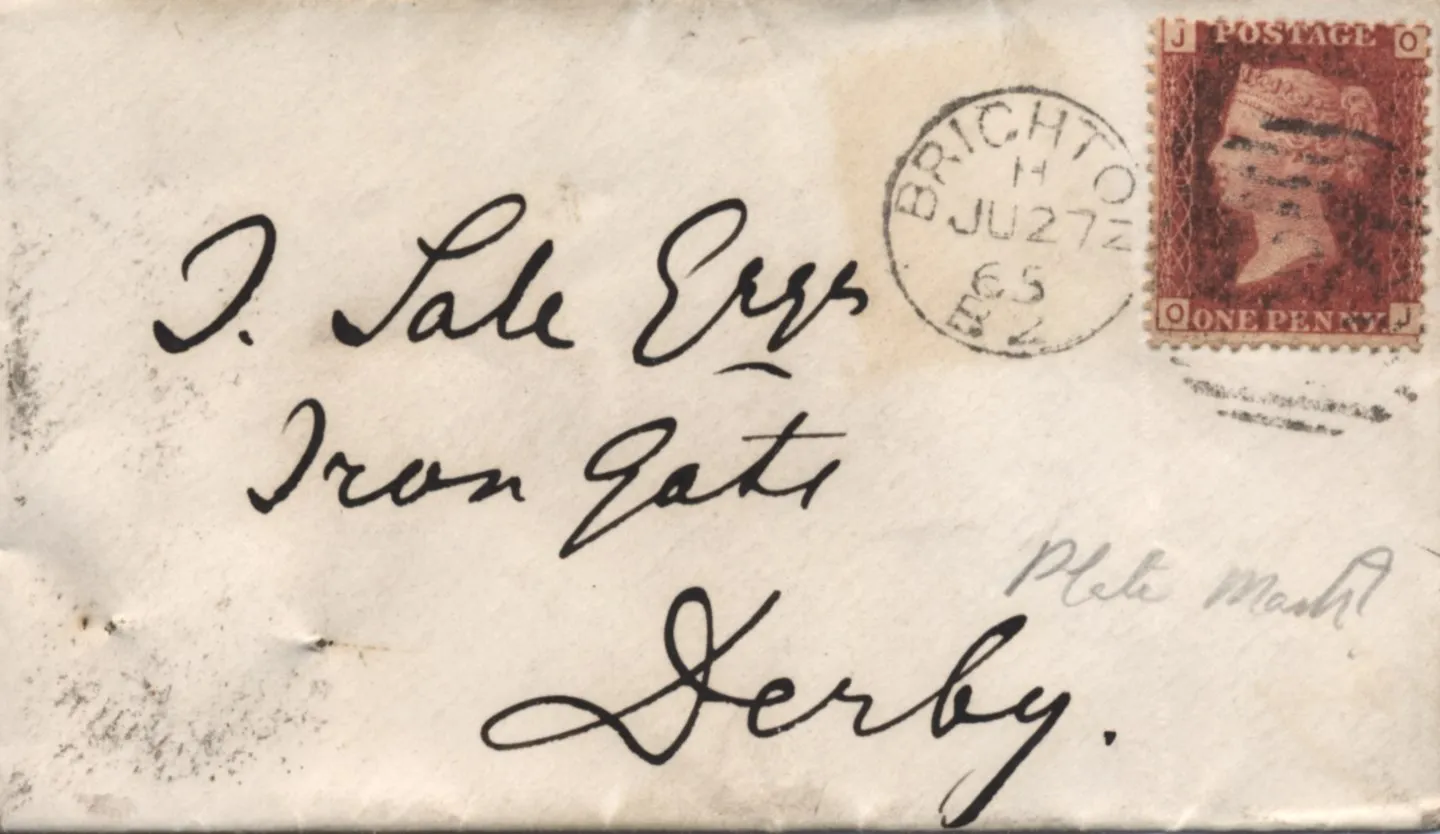 J POSTAGE O
BRIGHTON
H
JU 27
65
B 2
O ONE PENNY J
J. Sale Esqr
Iron Gate
Derby.
Plate